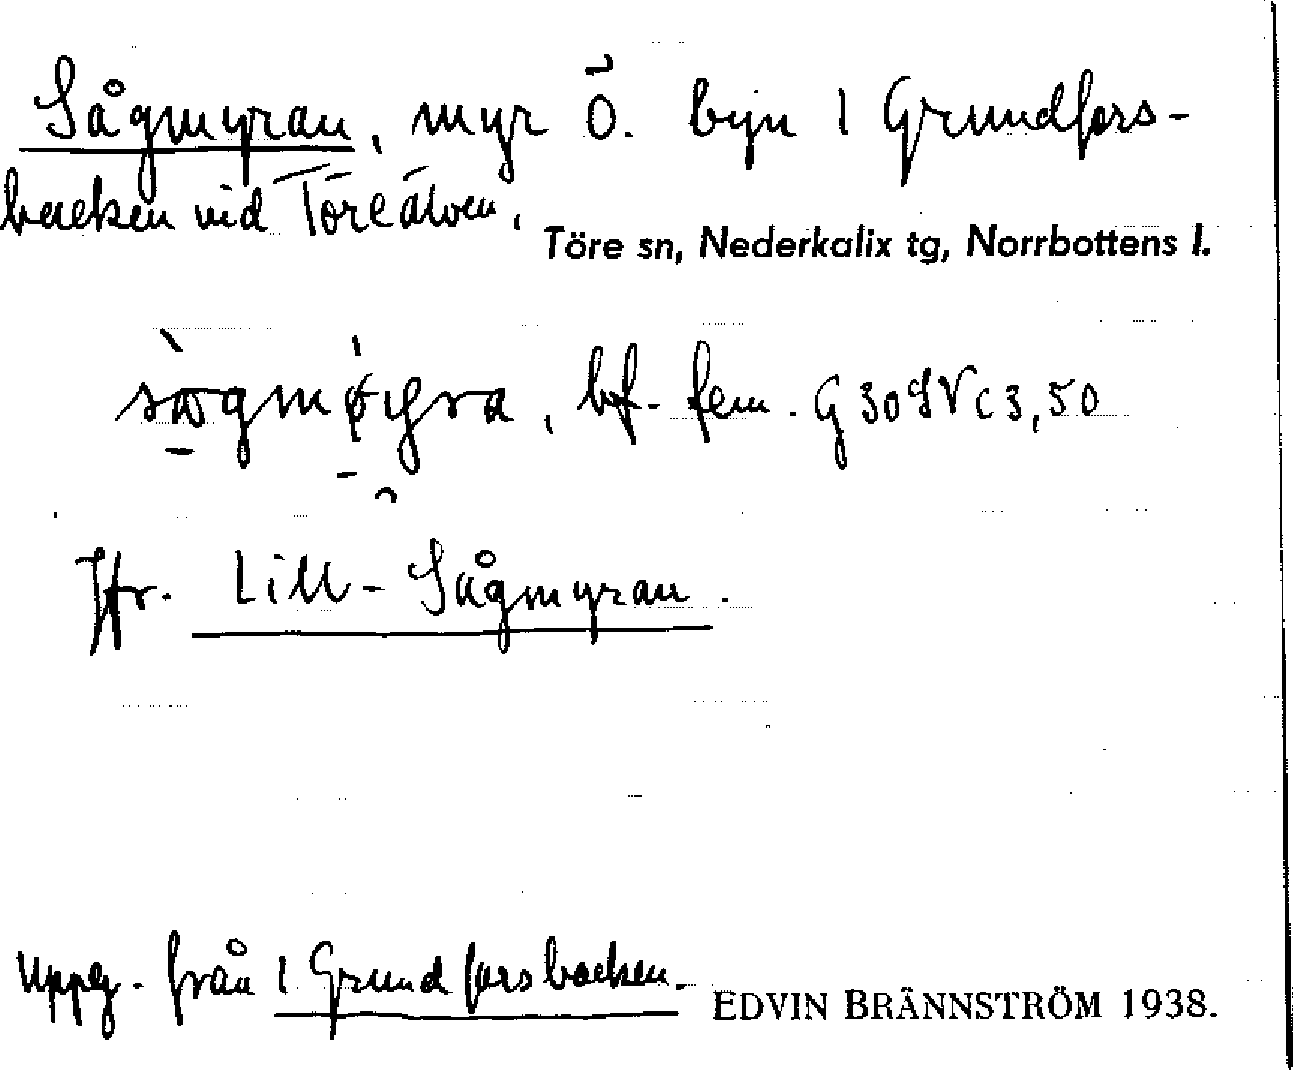 Sågmyran, myr Ö. byn 1 Grundfors-
backen vid Töreälven.
Töre sn, Nederkalix tg, Norrbottens l.
bf. fem. G 30 c 3,50
Jfr. Lill-Sågmyran.
Uppg. från 1 Grundforsbacken.
EDVIN BRÄNNSTRÖM 1938.